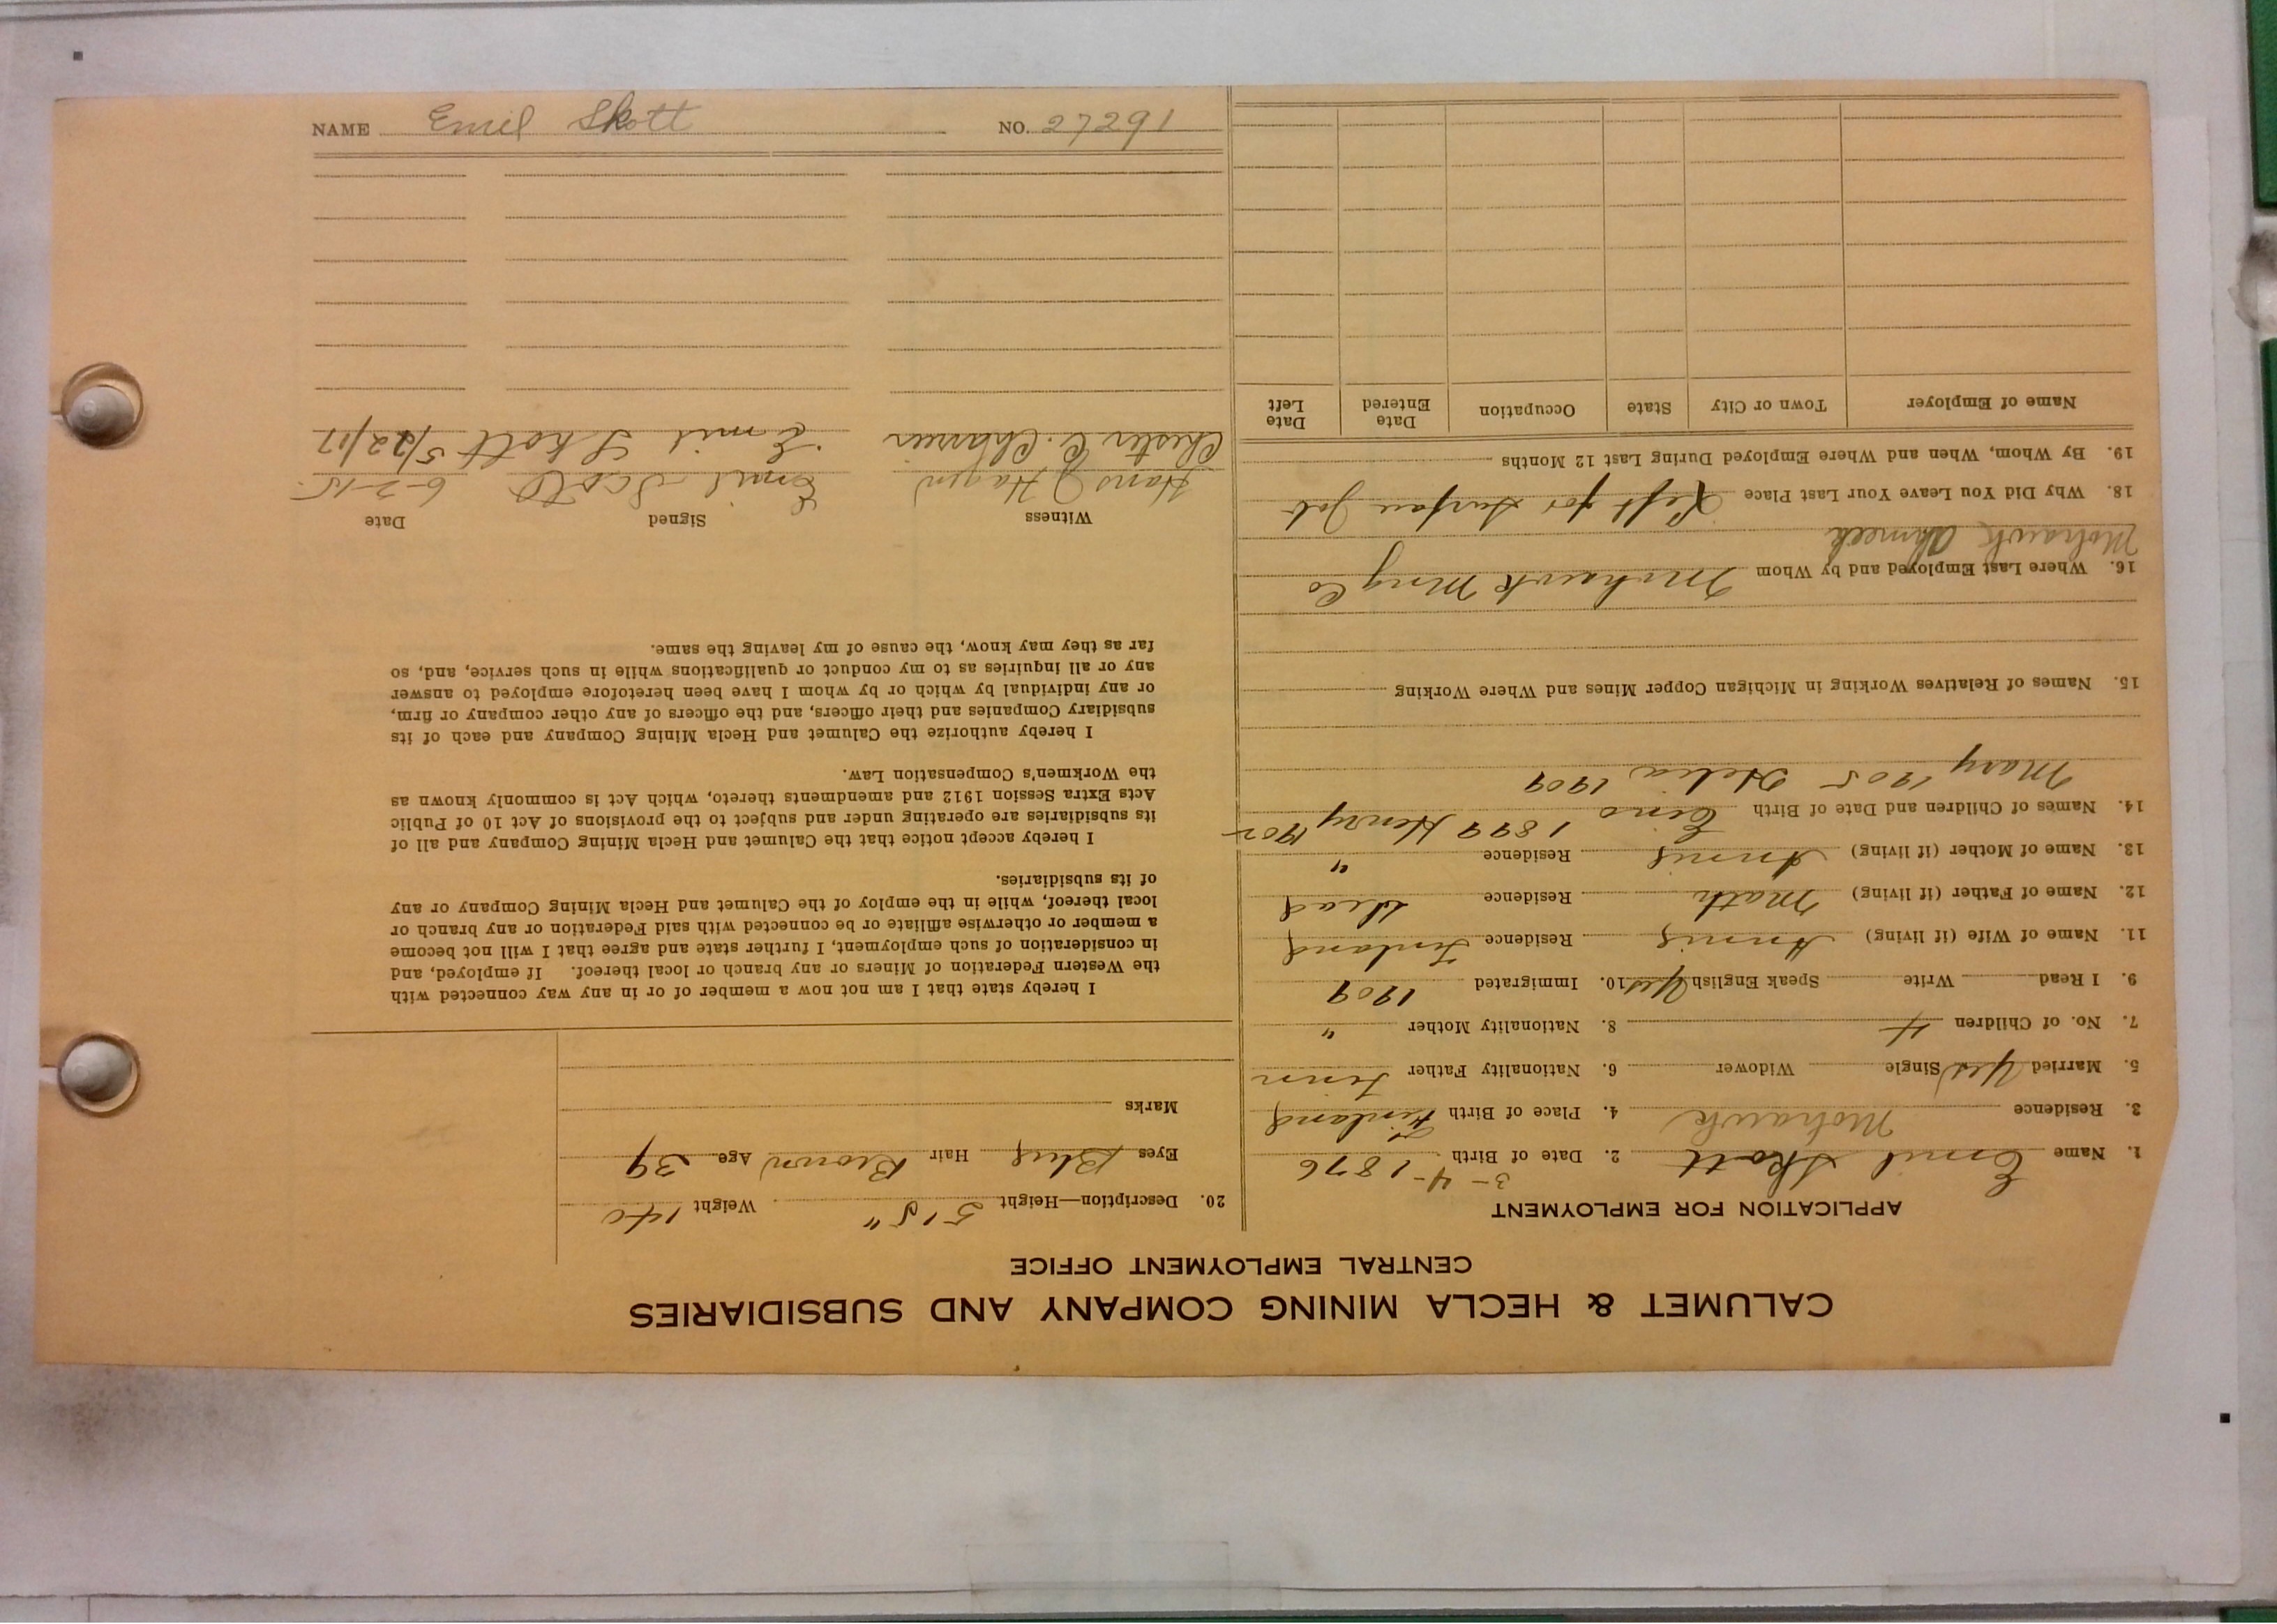 CALUMET & HECLA MINING COMPANY AND SUBSIDIARIES
CENTRAL EMPLOYMENT OFFICE
APPLICATION FOR EMPLOYMENT
1. Name Emil Skott 2. Date of Birth 3-4-1876
3. Residence Mohawk 4. Place of Birth Finland
5. Married Yes Single Widower 6. Nationality Father Finn
7. No. of Children 4 8. Nationality Mother "
9. I Read Write Speak English Yes 10. Immigrated 1909
11. Name of Wife (if living) Annie Residence Finland
12. Name of Father (if living) Math Residence dead
13. Name of Mother (if living) Annie Residence "
14. Names of Children and Date of Birth Eino 1899 Henry 1902
Mary 1905 Helia 1909
15. Names of Relatives Working in Michigan Copper Mines and Where Working
16. Where Last Employed and by Whom Mohawk Mng Co
Mohawk Ahmeek
18. Why Did You Leave Your Last Place Left for Surface Job
19. By Whom, When and Where Employed During Last 12 Months
Name of Employer Town or City State Occupation Date Entered Date Left
20. Description—Height 5' 8" Weight 140
Eyes Blue Hair Brown Age 39
Marks
I hereby state that I am not now a member of or in any way connected with
the Western Federation of Miners or any branch or local thereof. If employed, and
in consideration of such employment, I further state and agree that I will not become
a member or otherwise affiliate or be connected with said Federation or any branch or
local thereof, while in the employ of the Calumet and Hecla Mining Company or any
of its subsidiaries.
I hereby accept notice that the Calumet and Hecla Mining Company and all of
its subsidiaries are operating under and subject to the provisions of Act 10 of Public
Acts Extra Session 1912 and amendments thereto, which Act is commonly known as
the Workmen's Compensation Law.
I hereby authorize the Calumet and Hecla Mining Company and each of its
subsidiary Companies and their officers, and the officers of any other company or firm,
or any individual by which or by whom I have been heretofore employed to answer
any or all inquiries as to my conduct or qualifications while in such service, and, so
far as they may know, the cause of my leaving the same.
Witness Signed Date
Hans J Hagen Emil Scott 6-2-15.
Chester C. Emil Skott 5/22/17
NAME Emil Skott NO. 27291